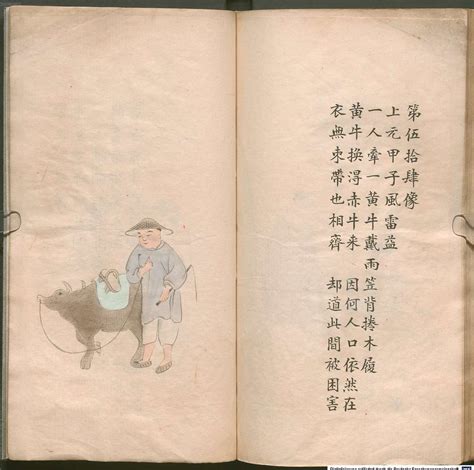 第伍拾肆像
上元甲子風雷益
一人牽一黃牛戴雨笠背捲木履
黃牛換得赤牛来　因何人口依然在
衣無束帶也相齊　却道此間被困害